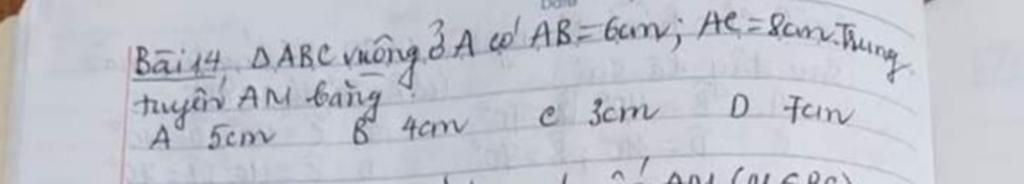 Bài 14, Δ ABC vuông ở A có AB = 6cm; AC = 8cm. Trung
tuyến AM bằng
A 5cm B 4cm C 3cm D 7cm